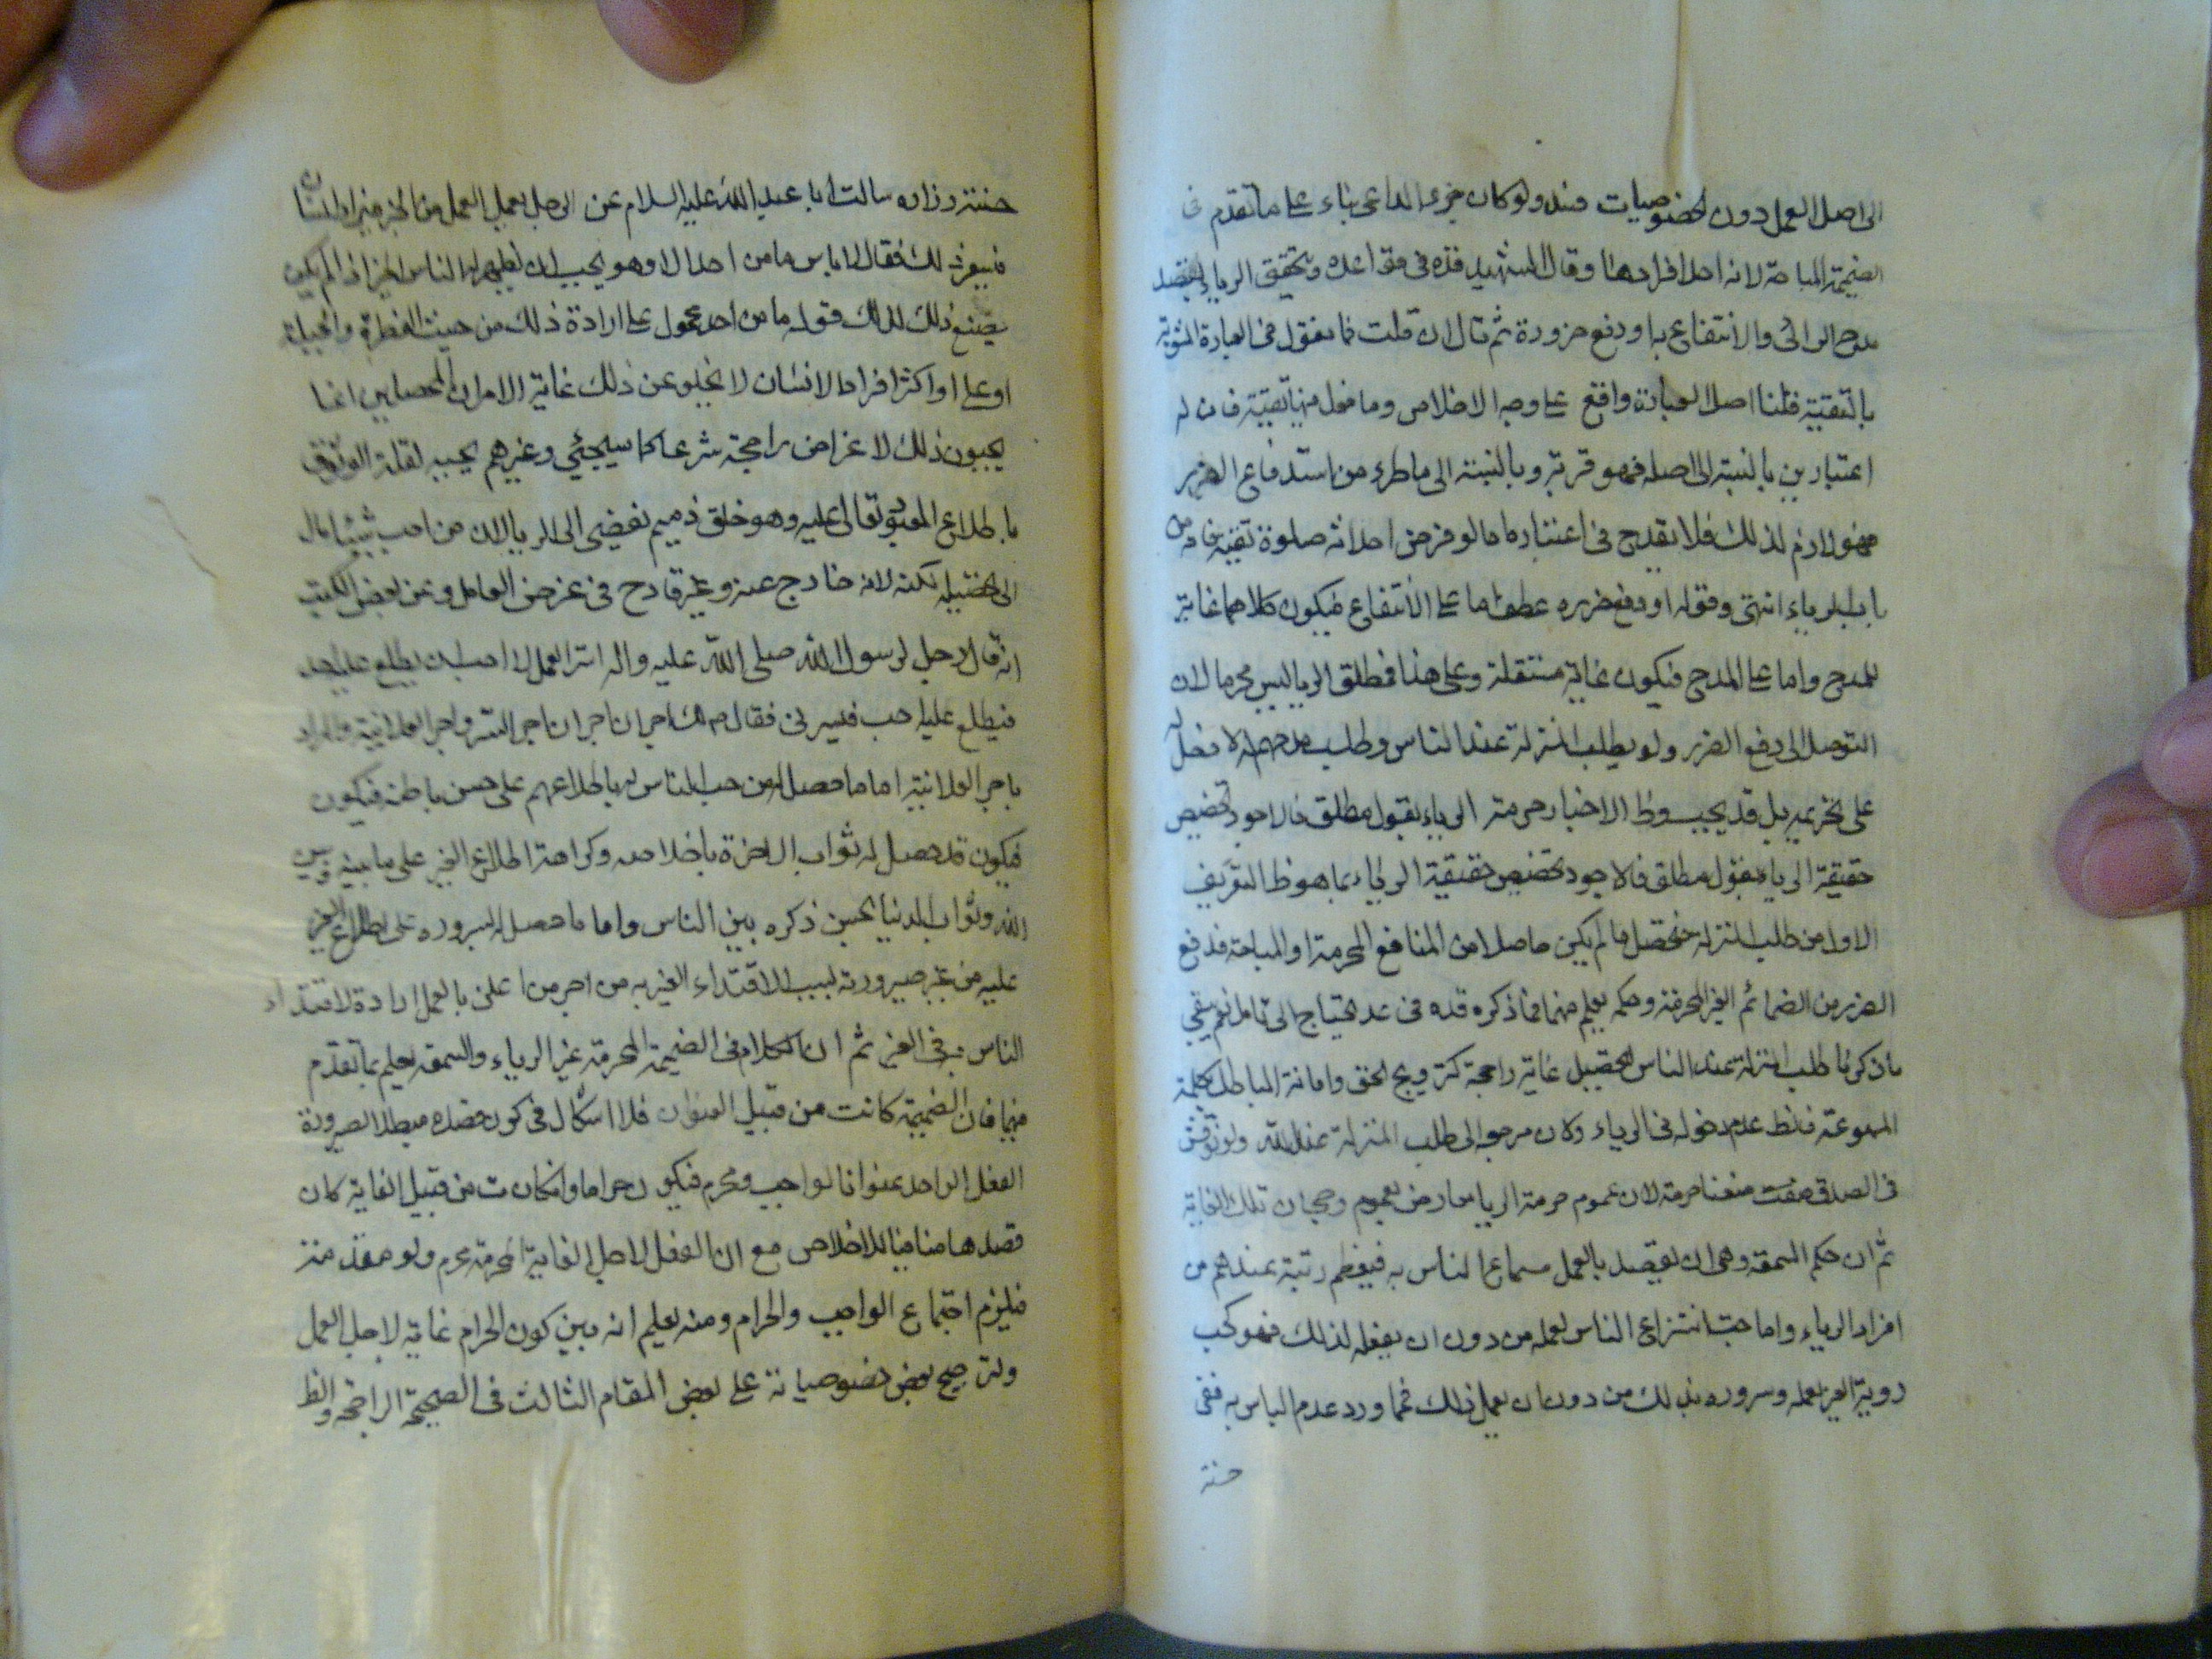 الى اصل العمل دون الخصوصيات منه ولو كان جزء الداعى بناء على ما تقدم فى
الضميمة المباحة لانه احد افرادها وقال الشهيد قده فى قواعده ويتحقق الرياء بقصد
مدح الرائى والانتفاع به او دفع ضرره ثم قال ان قلت فما تقول فى العبادة المشوبة
بالتقية قلنا اصل العبادة واقع على وجه الاخلاص وما فعل منها تقية فان له
اعتبارين بالنسبة الى اصله فهو قربة وبالنسبة الى ما طرء من استدفاع الضرر
فهو لازم لذلك فلا يقدح فى اعتباره اما لو فرض احداثه صلوة تقية فانه من
باب الرياء انتهى وقوله او دفع ضرره عطف اما على الانتفاع فيكون كلاهما غاية
للمدح واما على المدح فيكون غاية مستقلة وعلى هذا فمطلق الريا ليس محرما لان
التوصل الى دفع الضرر ولو بطلب المنزلة عند الناس وطلب مدحهم له لا دليل
على تحريمه بل قد يجب وظ الاخبار حرمة الرياء بقول مطلق فالاجود تخصيص
حقيقة الرياء بقول مطلق فالاجود تخصيص حقيقة الرياء بما هو ظ التعريف
الاول من طلب المنزلة لتحصل ما لم يكن حاصلا من المنافع المحرمة او المباحة فدفع
الضرر من الضمائم الغير المحرمة وحكمه يعلم منهما فما ذكره قده فى عد يحتاج الى تامل نعم يبقى
ما ذكرنا طلب المنزلة عند الناس لتحصيل غاية راجحة كترويج الحق واماتة الباطل بكلمة
المسموعة فالظ عدم دخوله فى الرياء وكان مرجعه الى طلب المنزلة عند الله ولو نوقش
فى الصدق منعنا حرمته لان عموم حرمة الريا معارض بعموم رجحان تلك الغاية
ثم ان حكم السمعة وهى ان يقصد بالعمل سماع الناس به فيعظم رتبته عندهم من
افراد الرياء واما حب استماع الناس لعمله من دون ان يفعله لذلك فهو كحب
رؤية الغير لعمله وسروره بذلك من دون ان يعمل لذلك فما ورد عدم الباس به ففى
حسنة
حسنة زراره سالت ابا عبد الله عليه السلام عن الرجل يعمل العمل من الخير فيراه انسان
فيسره ذلك فقال لا باس ما من احد الا وهو يحب ان يظهر له الناس الخير اذا لم يكن
يصنع ذلك لذلك قوله ما من احد محمول على ارادة ذلك من حيث الفطرة والجبلة
او على ان اكثر افراد الانسان لا يخلو عن ذلك غاية الامر ان المخلصين انما
يحبون ذلك لاغراض راجحة شرعا كما سيجئ وغيرهم يحبه لقلة الوثوق
باطلاع المعبود تعالى عليه وهو خلق ذميم يفضى الى الريا لان من احب شيئا مال
الى تحصيله لكنه لانه خارج عنه وغير قادح فى غرض العامل وعن بعض الكتب
انه قال رجل لرسول الله صلى الله عليه واله اسر العمل لا احب ان يطلع عليه احد
فيطلع عليه احب فيسرنى فقال ص لك اجران اجران اجر السر واجر العلانية والمراد
باجر العلانية اما ما حصل له من حب الناس له باطلاعهم على حسن باطنه فيكون
فيكون قد حصل له ثواب الاخرة باخلاصه وكراهة اطلاع الغير على ما بينه وبين
الله وثواب الدنيا بحسن ذكره بين الناس واما ما حصل له بسروره على اطلاع الغير
عليه من غير صيرورته سببا لاقتداء الغير به من اجر من اعلن بالعمل ارادة لاقتداء
الناس به فى الغير ثم ان الكلام فى الضميمة المحرمة غير الرياء والسمعة يعلم بما تقدم
فيها فان الضميمة كانت من قبيل العنوان فلا اشكال فى كون قصده مبطلا لصيرورة
الفعل الواحد عنوانا لواجب ومحرم فيكون حراما وان كانت من قبيل الغاية كان
قصدها منافيا للاخلاص مع ان الفعل لاجل الغاية المحرمة محرم ولو مقدمة
فيلزم اجتماع الواجب والحرام ومنه يعلم انه بين كون الحرام غاية لاجل العمل
ولترجيح بعض خصوصياته على بعض المقام الثالث فى الضميمة الراجحة والظ